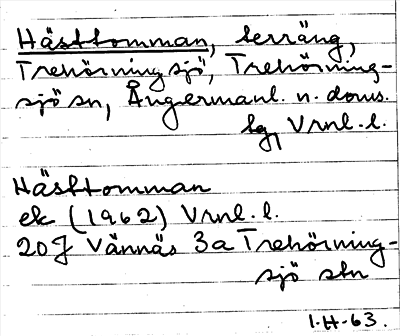 Hästtomman, terräng,
Trehörningsjö, Trehörning-
sjö sn, Ångermanl. n. doms.
sg, Vrnl. l.
Hästtomman
ek (1962) Vrnl. l.
20J Vännäs 3a Trehörning-
sjö stn
1-H-63.